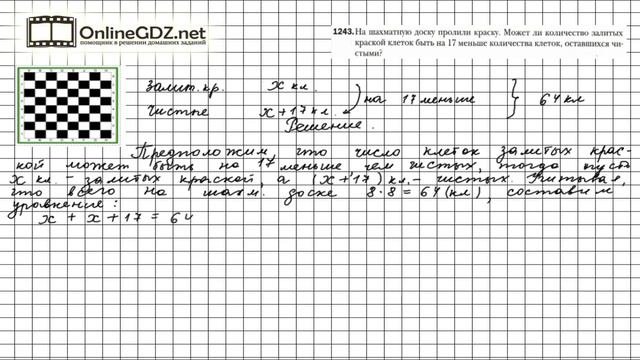 OnlineGDZ.net
помощник в решении домашних заданий
1243. На шахматную доску пролили краску. Может ли количество залитых
краской клеток быть на 17 меньше количества клеток, оставшихся чи-
стыми?
Залит. кр. x кл. на 17 меньше 64 кл
Чистые x+17 кл.
Решение.
Предположим, что число клеток залитых крас-
кой может быть на 17 меньше чем чистых, тогда пусть
x кл. - залитых краской, а (x+17) кл. - чистых. Учитывая,
что всего на шахм. доске 8·8=64 (кл), составим
уравнение:
x + x + 17 = 64